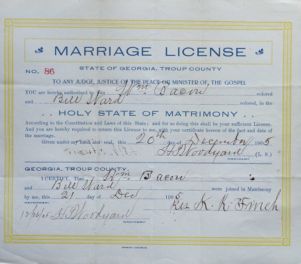 MARRIAGE LICENSE
STATE OF GEORGIA, TROUP COUNTY
NO. 86
TO ANY JUDGE, JUSTICE OF THE PEACE OR MINISTER OF THE GOSPEL
YOU are hereby authorized to join Wm Bacon colored
and Bill Ward colored, in the
HOLY STATE OF MATRIMONY
According to the Constitution and Laws of this State; and for so doing this shall be your sufficient License.
And you are hereby required to return this License to me with your certificate hereon of the fact and date
of the marriage.
Given under my hand and seal, this 20th day of December 1905
H. T. Woodyard (L. S.)
GEORGIA, TROUP COUNTY.
I CERTIFY, That Wm Bacon
and Bill Ward were joined in Matrimony
by me, this 21 day of Dec 1905 Rev K. K. Finch
Woodyard